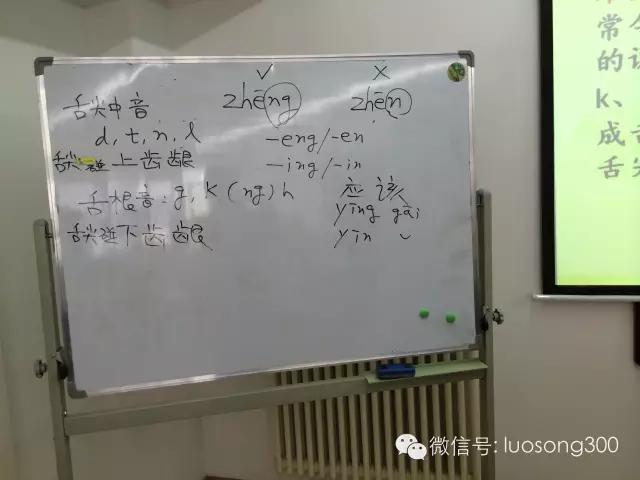 √ ×
zhēng zhēn
舌尖中音
d, t, n, l
-eng/-en
舌尖碰上齿龈
-ing/-in
舌根音: g, k (ng) h
应该
yīng gāi
舌尖碰下齿龈
yīn √
的
k、
成
舌尖
微信号: luosong300